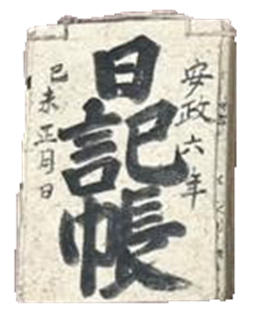 安政六年
日記帳
己未正月日